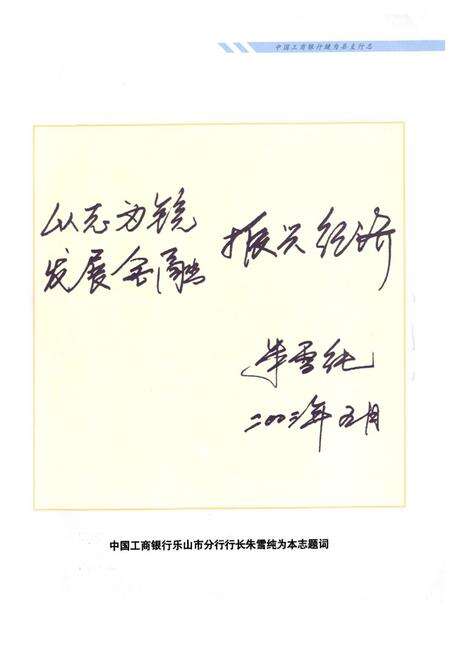 中国工商银行犍为县支行志
以志为镜
发展金融 振兴经济
朱雪纯
二00三年五月
中国工商银行乐山市分行行长朱雪纯为本志题词